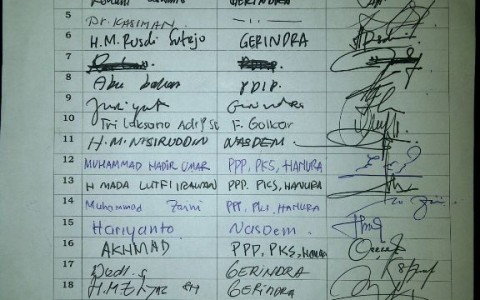 GERINDRA
5 Dr. KASIMAN — " —
6 H.M. Rusdi Sutejo GERINDRA
7
8 Abu bakar PDIP.
9 Gerindra
10 Tri Laksono Adi F. Golkar
11 H.M. NASIRUDDIN NASDEM.
12 MUHAMMAD NADIR UMAR PPP, PKS, HANURA
13 H MADA LUTFI IRAWAN PPP, PKS, HANURA
14 Muhammad Zaini PPP, PKS, HANURA
15 Hariyanto Nasdem.
16 AKHMAD PPP, PKS, HANURA
17 Dedi GERINDRA
18 GERINDRA